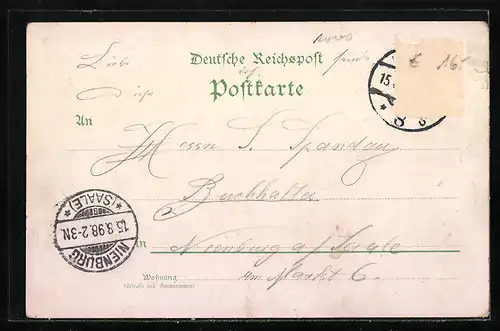 Deutsche Reichspost
Postkarte
An
Herrn S. Spandau
Buchhalter
in Nienburg a/Saale
am Markt 6.
Wohnung
(Straße und Hausnummer)
NIENBURG
*(SAALE)*
15.8.98.2-3N.
15.